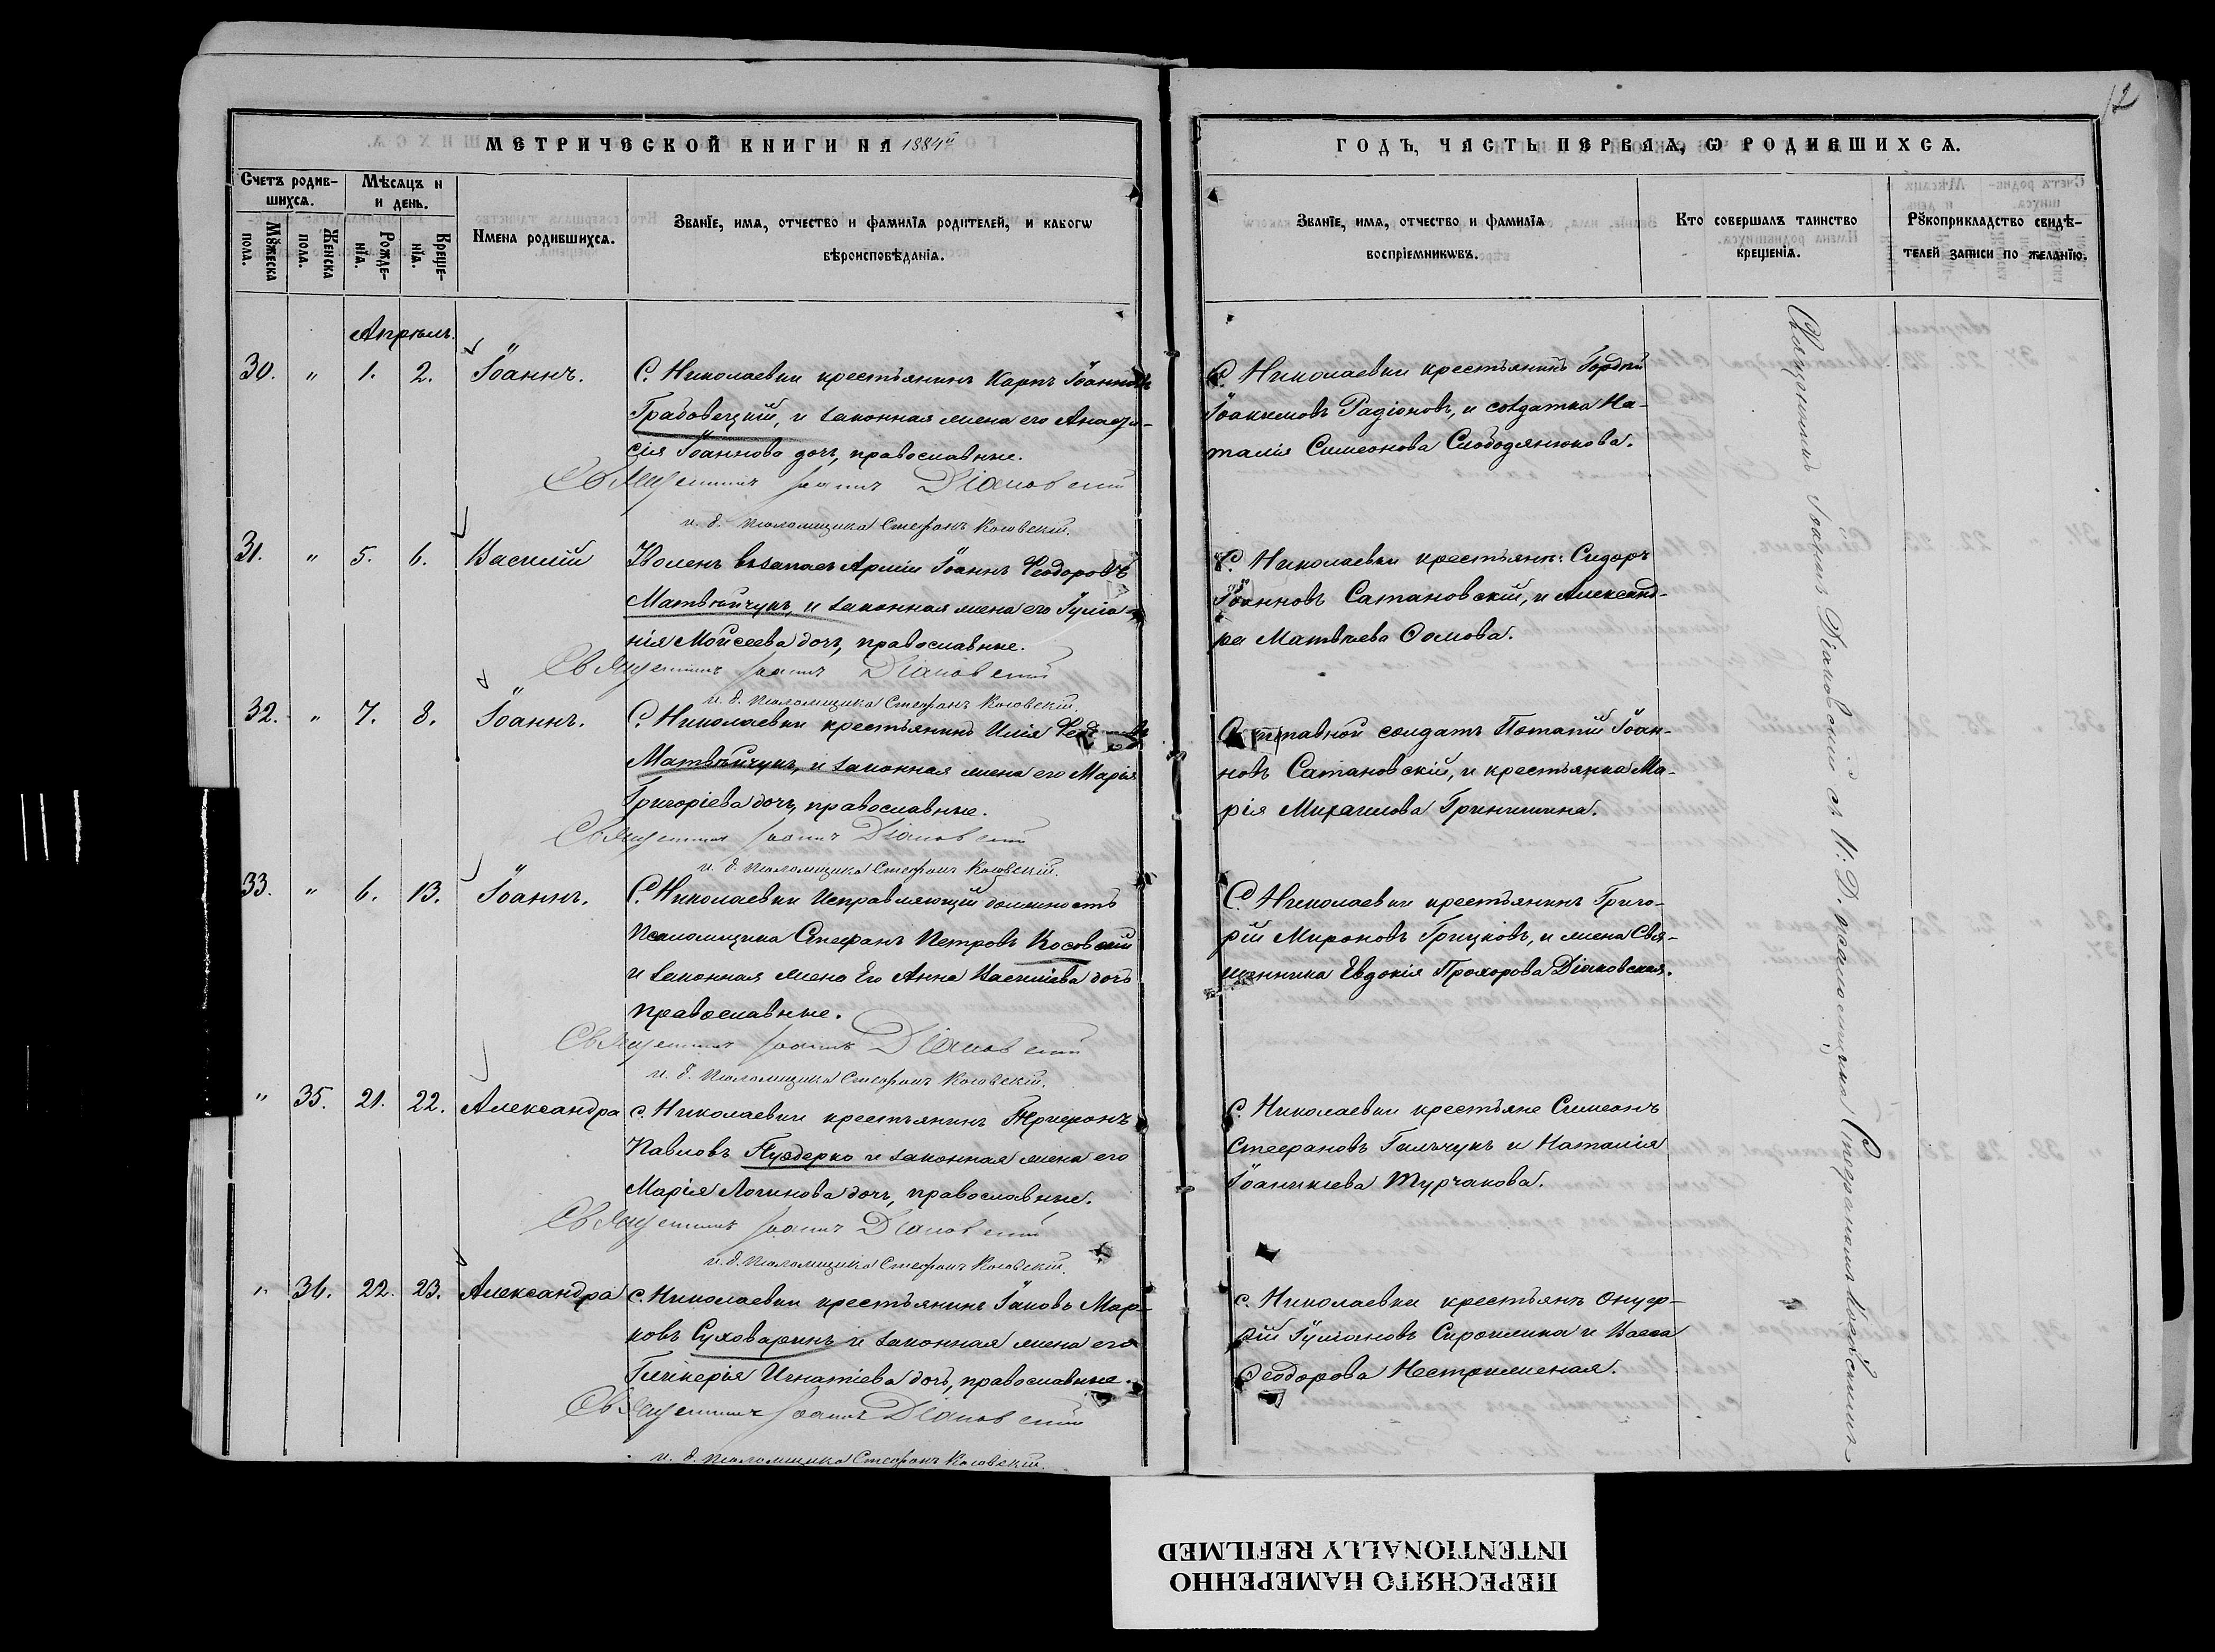 12
МЕТРИЧЕСКОЙ КНИГИ НА 1884й
ГОДЪ, ЧАСТЬ ПЕРВАѦ, Ѡ РОДИВШИХСѦ.
Счетъ родив-
шихсѧ.
Мѣсѧцъ и
и день.
Мꙋжеска
пола.
Женска
пола.
Рожде-
нїѧ.
Креще-
нїѧ.
Имена родившихсѧ.
Званїе, имѧ, отчество и фамилїѧ родителей, и каковѡ
вѣроисповѣданїѧ.
Званїе, имѧ, отчество и фамилїѧ
воспрїемникѡвъ.
Кто совершалъ таинство
крещенїѧ.
Рꙋкоприкладство свидѣ-
телей записи по желанїю.
Апрѣль.
30. " 1. 2. Іоаннъ.
С. Николаевки крестьянинъ Карпъ Іоанновъ
Грабовецкій, и законная жена его Анаста-
сія Іоаннова дочь, православные.
Священникъ Іоаннъ Діаковскій
и. д. псаломщика Стефанъ Косовскій.
С. Николаевки крестьянинъ Гордій
Іоакимовъ Радіоновъ, и солдатка На-
талія Симеонова Слободянюкова.
31. " 5. 6. Василій
Уволенъ въ запасъ Арміи Іоаннъ Феодоровъ
Матвѣйчукъ, и законная жена его Іуліа-
нія Моисеева дочь, православные.
Священникъ Іоаннъ Діаковскій
и. д. псаломщика Стефанъ Косовскій.
С. Николаевки крестьян: Сидоръ
Іоанновъ Сатановскій, и Александ-
ра Матвѣева Сомова.
32. " 7. 8. Іоаннъ.
С. Николаевки крестьянинъ Илія
Матвѣйчукъ, и законная жена его Марія
Григоріева дочь, православные.
Священникъ Іоаннъ Діаковскій
и. д. псаломщика Стефанъ Косовскій.
Отставной солдатъ Потапій Іоан-
новъ Сатановскій, и крестьянка Ма-
рія Михаилова Гринишина.
33. " 6. 13. Іоаннъ.
С. Николаевки Исправляющій должность
Псаломщика Стефанъ Петровъ Косовскій
и законная жена Его Анна Василіева дочь
православные.
Священникъ Іоаннъ Діаковскій
и. д. псаломщика Стефанъ Косовскій.
С. Николаевки крестьянинъ Григо-
рій Мироновъ Грицковъ, и жена Свя-
щенника Евдокія Прохорова Діаковская.
" 35. 21. 22. Александра
с. Николаевки крестьянинъ Трифонъ
Павловъ Пуздерко и законная жена его
Марія Логинова дочь, православные.
Священникъ Іоаннъ Діаковскій
и. д. псаломщика Стефанъ Косовскій.
С. Николаевки крестьяне Симеонъ
Стефановъ Гальчукъ и Наталія
Іоаникіева Турчакова.
" 36. 22. 23. Александра
с. Николаевки крестьянинъ Іаковъ Мар-
ковъ Суховаринъ и законная жена его
Гликерія Игнатіева дочь, православные.
Священникъ Іоаннъ Діаковскій
и. д. псаломщика Стефанъ Косовскій.
с. Николаевки крестьянъ Онуф-
рій Іуліановъ Сирошлика и Васса
Феодорова Нестрименая.
Священникъ Іоаннъ Діаковскій съ И: Д. псаломщика Стефаномъ Косовскимъ
ПЕРЕСНЯТО НАМЕРЕННО
INTENTIONALLY REFILMED